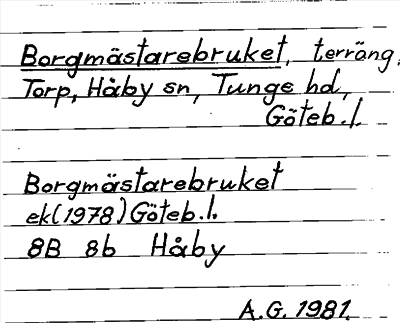 Borgmästarebruket, terräng,
Torp, Håby sn, Tunge hd,
Göteb. l.
Borgmästarebruket
ek (1978) Göteb. l.
8B 8b Håby
A.G. 1981.